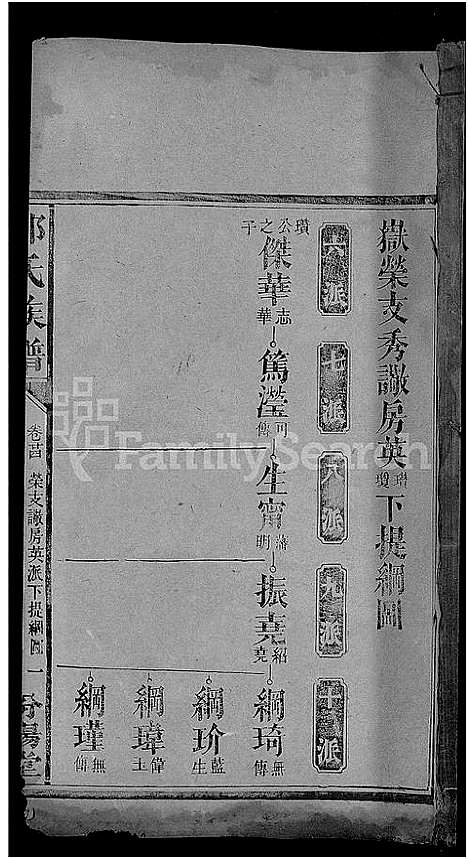 嶽榮支秀譤房英瓊瓊下提綱圖
六派
七派
八派
九派
十派
瓚公之子
傑華 志華
篤瀅 可傳
生甯 藩明
振堯 紹堯
綱琦 無傳
綱玠 藍生
綱瑋 偉士
綱瑾 無傳
氏族譜
榮支譤房英派下提綱圖
一
FamilySearch